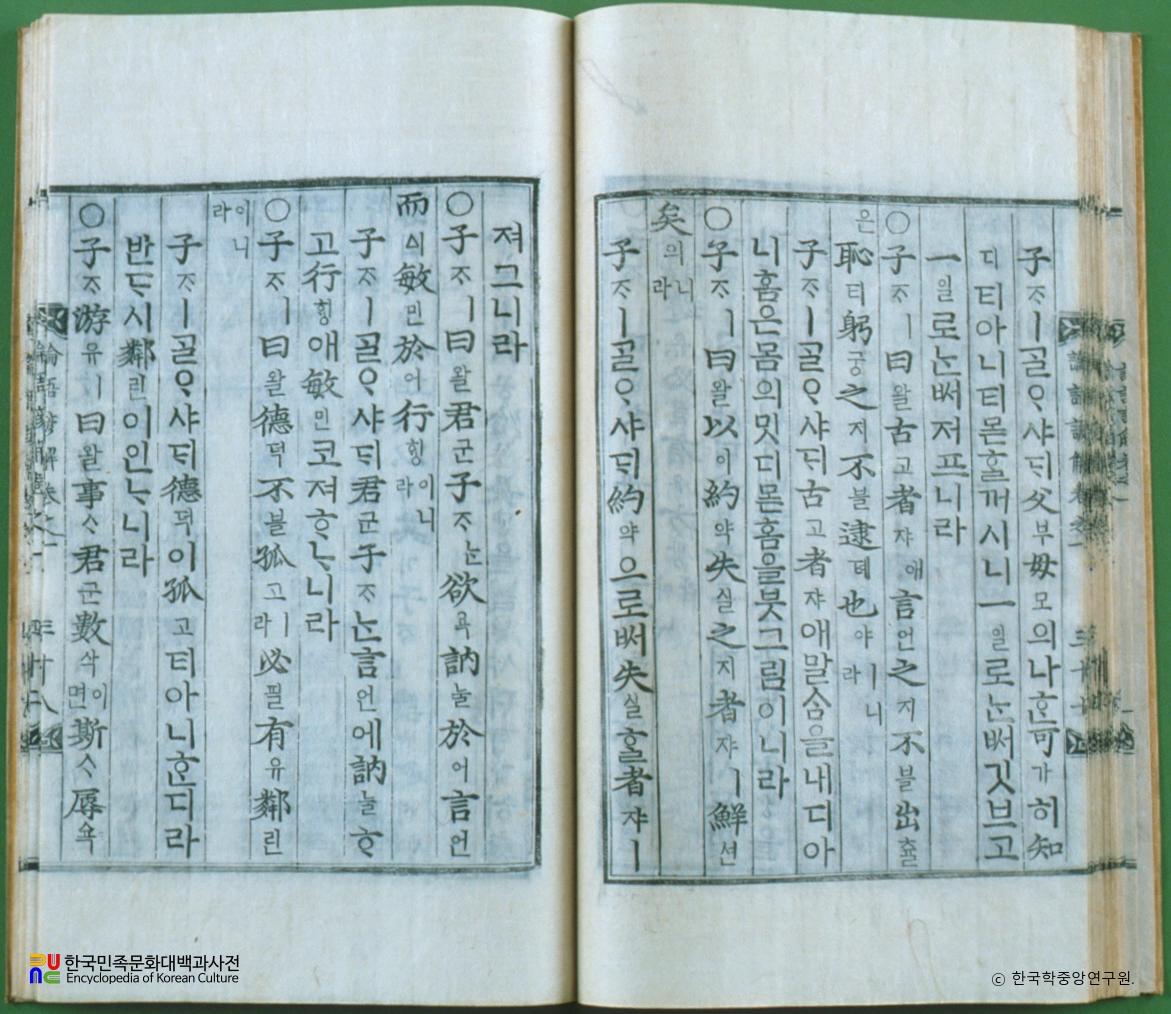 子ᄌᆞㅣᄀᆞᆯᄋᆞ샤ᄃᆡ父부母모의나ᄒᆞᆫ可가히知
디티아니티몯ᄒᆞᆯ꺼시니一일로ᄂᆞᆫᄡᅥ깃브고
一일로ᄂᆞᆫᄡᅥ저프니라
○子ᄌᆞㅣ曰왈古고者쟈애言언之지不블出츌
은恥티躬궁之지不블逮톄也야ㅣ니라
子ᄌᆞㅣᄀᆞᆯᄋᆞ샤ᄃᆡ古고者쟈애말ᄉᆞᆷ을내디아
니홈은몸의밋디몯홈을붓그림이니라
○子ᄌᆞㅣ曰왈以이約약失실之지者쟈ㅣ鮮션
矣의니라
子ᄌᆞㅣᄀᆞᆯᄋᆞ샤ᄃᆡ約약으로ᄡᅥ失실ᄒᆞᆯ者쟈ㅣ
져그니라
○子ᄌᆞㅣ曰왈君군子ᄌᆞᄂᆞᆫ欲욕訥눌於어言언
而ᅀᅵ敏민於어行ᄒᆡᆼ이니라
子ᄌᆞㅣᄀᆞᆯᄋᆞ샤ᄃᆡ君군子ᄌᆞᄂᆞᆫ言언에訥눌ᄒᆞ
고行ᄒᆡᆼ애敏민코져ᄒᆞᄂᆞ니라
○子ᄌᆞㅣ曰왈德덕不블孤고ㅣ라必필有유鄰린
이니라
子ᄌᆞㅣᄀᆞᆯᄋᆞ샤ᄃᆡ德덕이孤고티아니ᄒᆞᆫ디라
반ᄃᆞ시鄰린이인ᄂᆞ니라
○子ᄌᆞ游유ㅣ曰왈事ᄉᆞ君군數삭이면斯ᄉᆞ辱욕
論語諺解卷之一
한국민족문화대백과사전
Encyclopedia of Korean Culture
ⓒ 한국학중앙연구원.